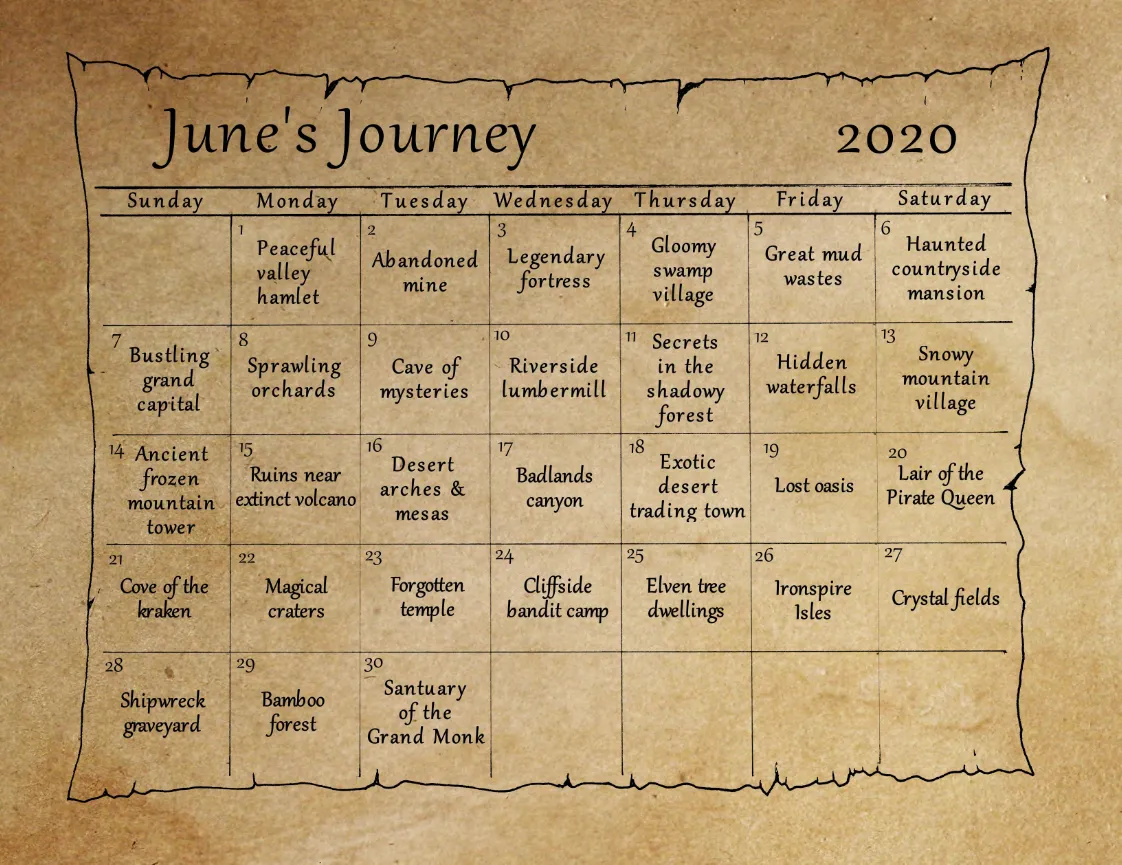 June's Journey 2020
Sunday Monday Tuesday Wednesday Thursday Friday Saturday
1
Peaceful
valley
hamlet
2
Abandoned
mine
3
Legendary
fortress
4
Gloomy
swamp
village
5
Great mud
wastes
6
Haunted
countryside
mansion
7
Bustling
grand
capital
8
Sprawling
orchards
9
Cave of
mysteries
10
Riverside
lumbermill
11
Secrets
in the
shadowy
forest
12
Hidden
waterfalls
13
Snowy
mountain
village
14
Ancient
frozen
mountain
tower
15
Ruins near
extinct volcano
16
Desert
arches &
mesas
17
Badlands
canyon
18
Exotic
desert
trading town
19
Lost oasis
20
Lair of the
Pirate Queen
21
Cove of the
kraken
22
Magical
craters
23
Forgotten
temple
24
Cliffside
bandit camp
25
Elven tree
dwellings
26
Ironspire
Isles
27
Crystal fields
28
Shipwreck
graveyard
29
Bamboo
forest
30
Santuary
of the
Grand Monk